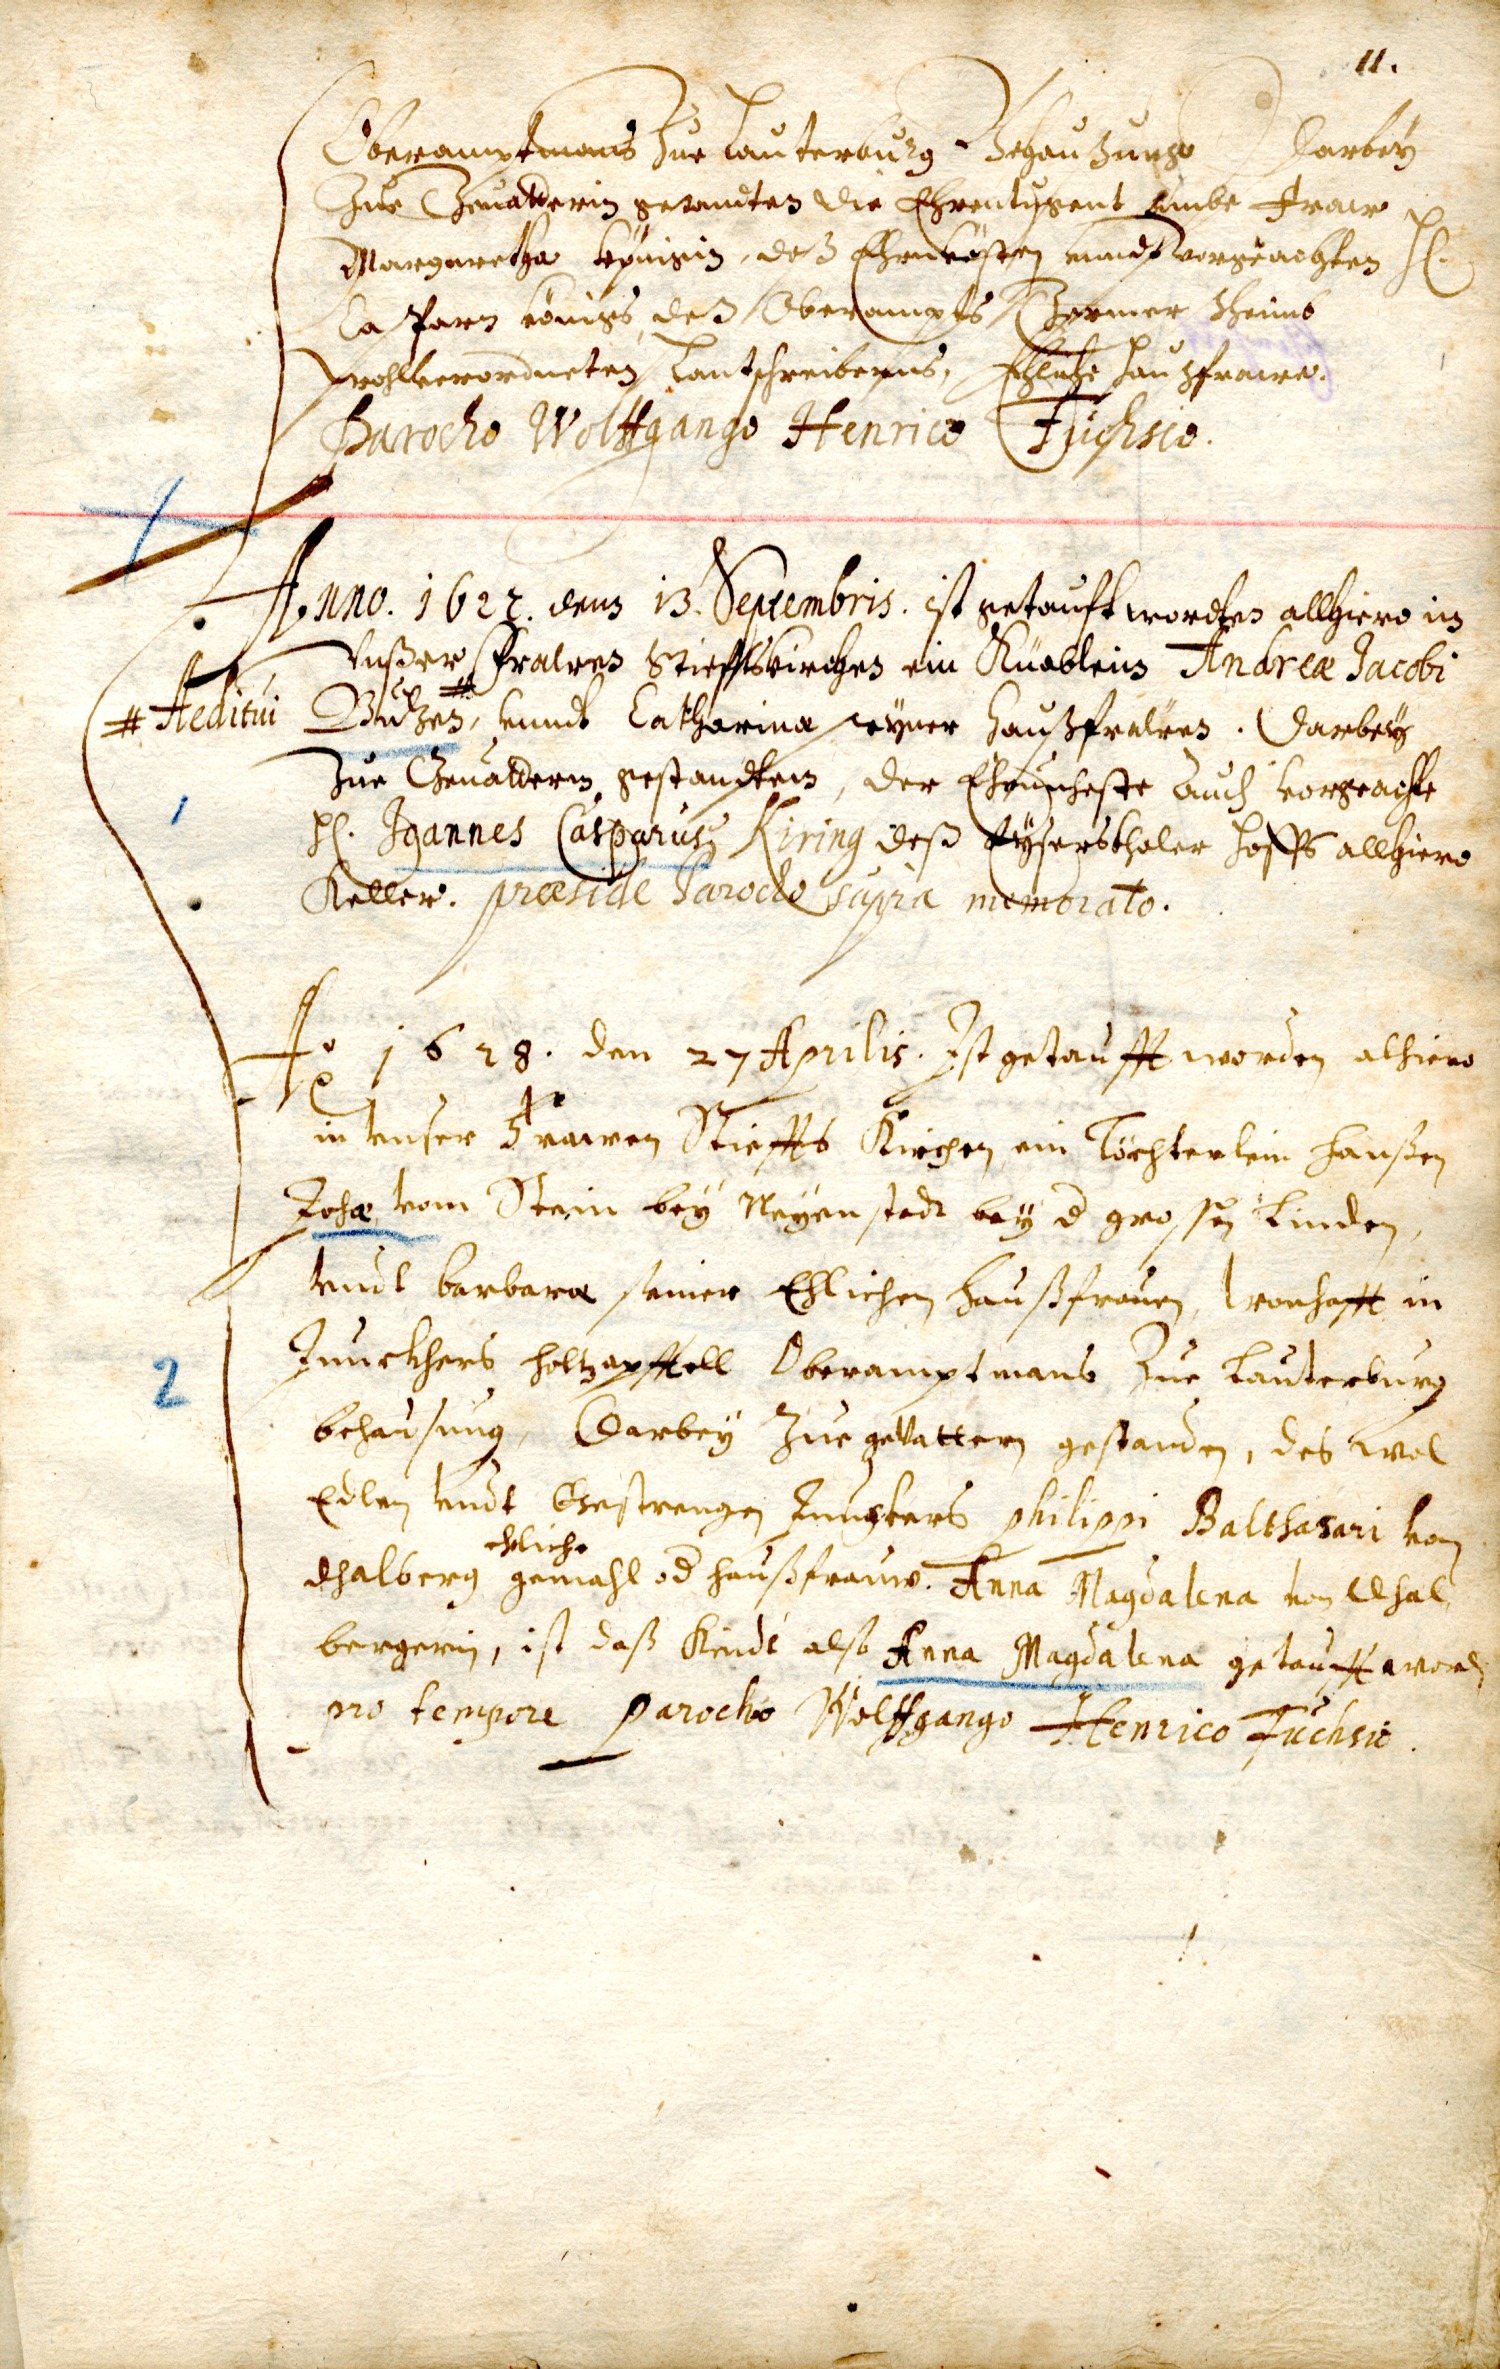 11.
Oberamptmans Zue Lauterburg Behaußunge Darbey
Zue Gevatterin gestandten die Ehrentugent Frawe
Margaretha Königin, deß Ehrnvösten unndt vorgeachten H.
Casparn Königs, deß Oberampts Germersheims
wohlverordneten Lantschreibers, Ehliche Haußfrawe.
Parocho Wolffgango Henrico Fuchsio.
Anno. 1627. denn 13. Septembris. ist getauft wordten allhiero in
Unßer Frawen Stiefftskirchen ein Knäblein Andreæ Jacobi
# Aeditui
Butzen, # unndt Catharinæ seyner Haußfrawen. Darbey
Zue Gevattern gestandten, der Ehrnveste auch vorgeachte
H. Joannes Casparus Kiring deß Eysersthaler Hoffs allhiero
Keller. præside Parocho supra memorato.
1
Ao 1628. den 27 Aprilis. Ist getaufft worden alhiero
in Unser Frawen Stieffts Kirchen, ein Töchterlein Hanßen
Johæ vom Stein bey Neyenstadt bey d grossen Linden,
vndt barbaræ seiner Ehlichen Haußfrauen, wonhafft in
Junckhers holtzapffell Oberamptmans Zue Lauterburg
2
behausung, Darbey Zue gevattern gestanden, des Wol
Edlen vndt Gestrengen Junckers philippi Balthasari von
ehliche
dhalberg gemahl od haußfrauw. Anna Magdalena von dhal
bergerin, ist daß Kindt also Anna Magdalena getaufft word
pro tempore Parocho Wolffgango Henrico Fuchsio.